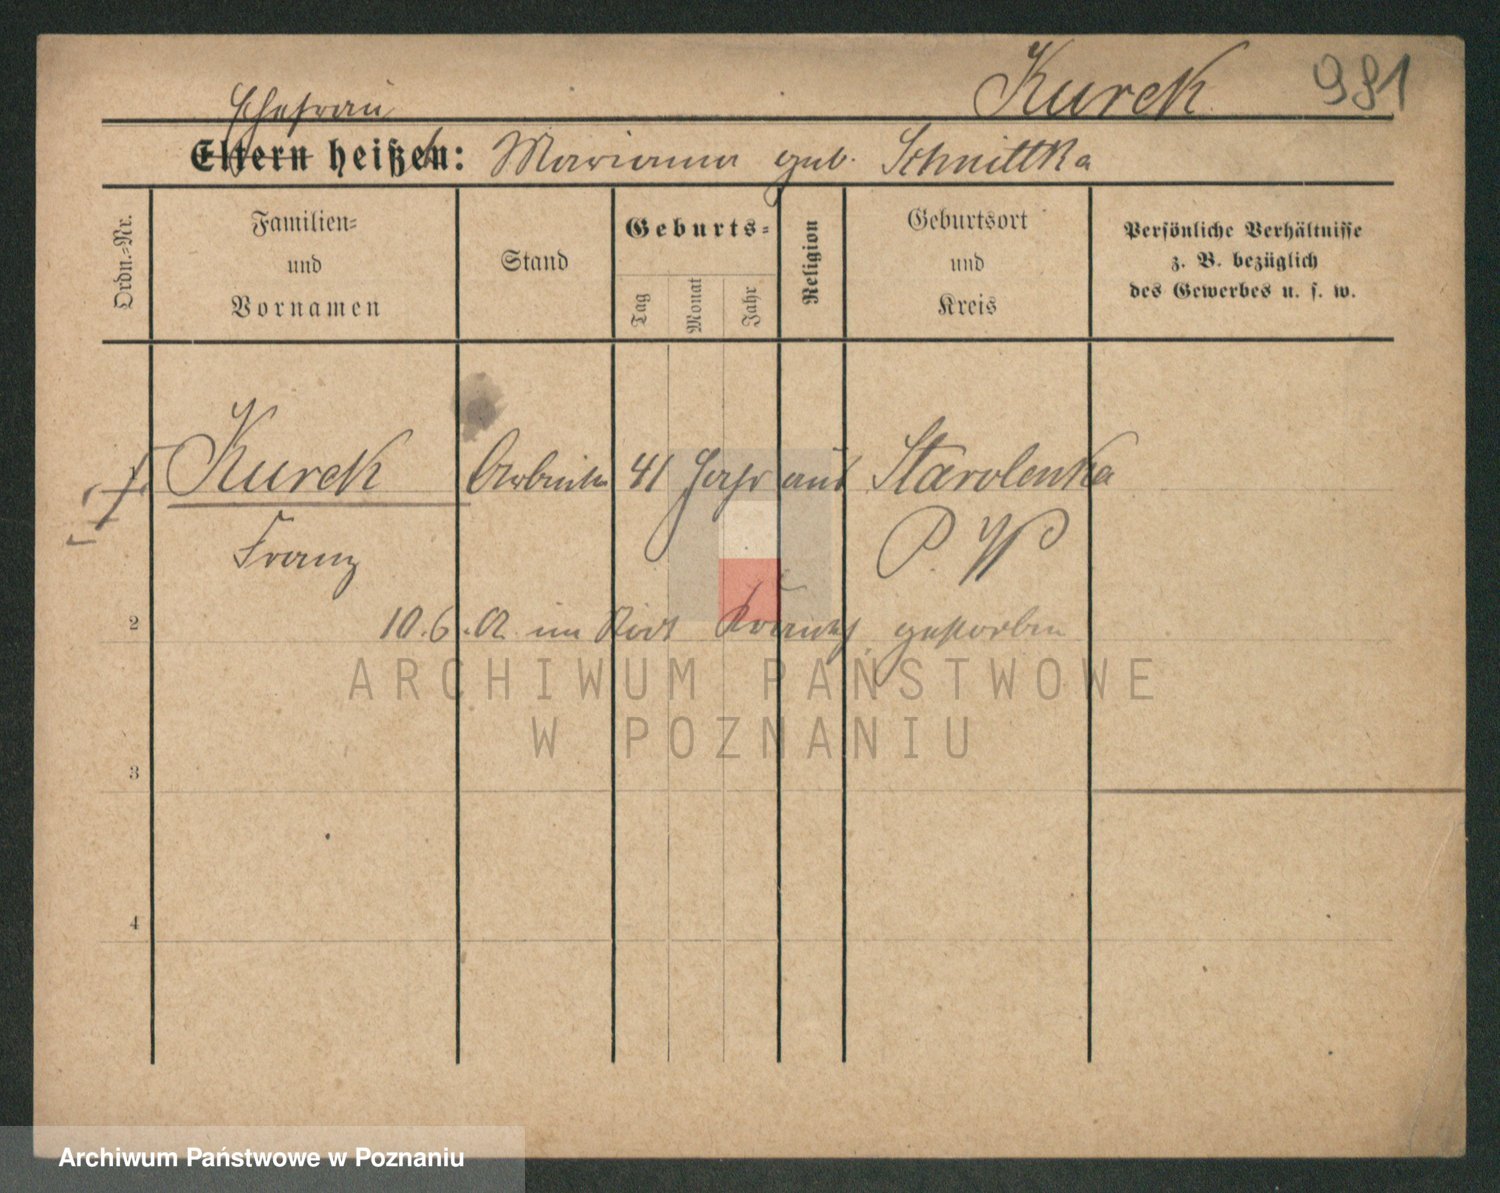 Kurek 981
Ehefrau
Eltern heißen: Marianna geb. Schnittka
Ordn.-Nr.
Familien-
und
Vornamen
Stand
Geburts-
Tag
Monat
Jahr
Religion
Geburtsort
und
Kreis
Persönliche Verhältnisse
z. B. bezüglich
des Gewerbes u. s. w.
Kurek Arbeiter 41 Jahr aus Starolenka
Franz P. W
2
10.6.02 im gestorben
3
4
ARCHIWUM PAŃSTWOWE
W POZNANIU
Archiwum Państwowe w Poznaniu